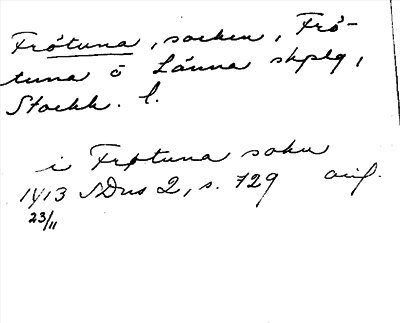 Frötuna, socken, Frö-
tuna o Länna skplg,
Stockh. l.
i Frøtuna sokn
1413 SDns 2, s. 729 orig.
23/11